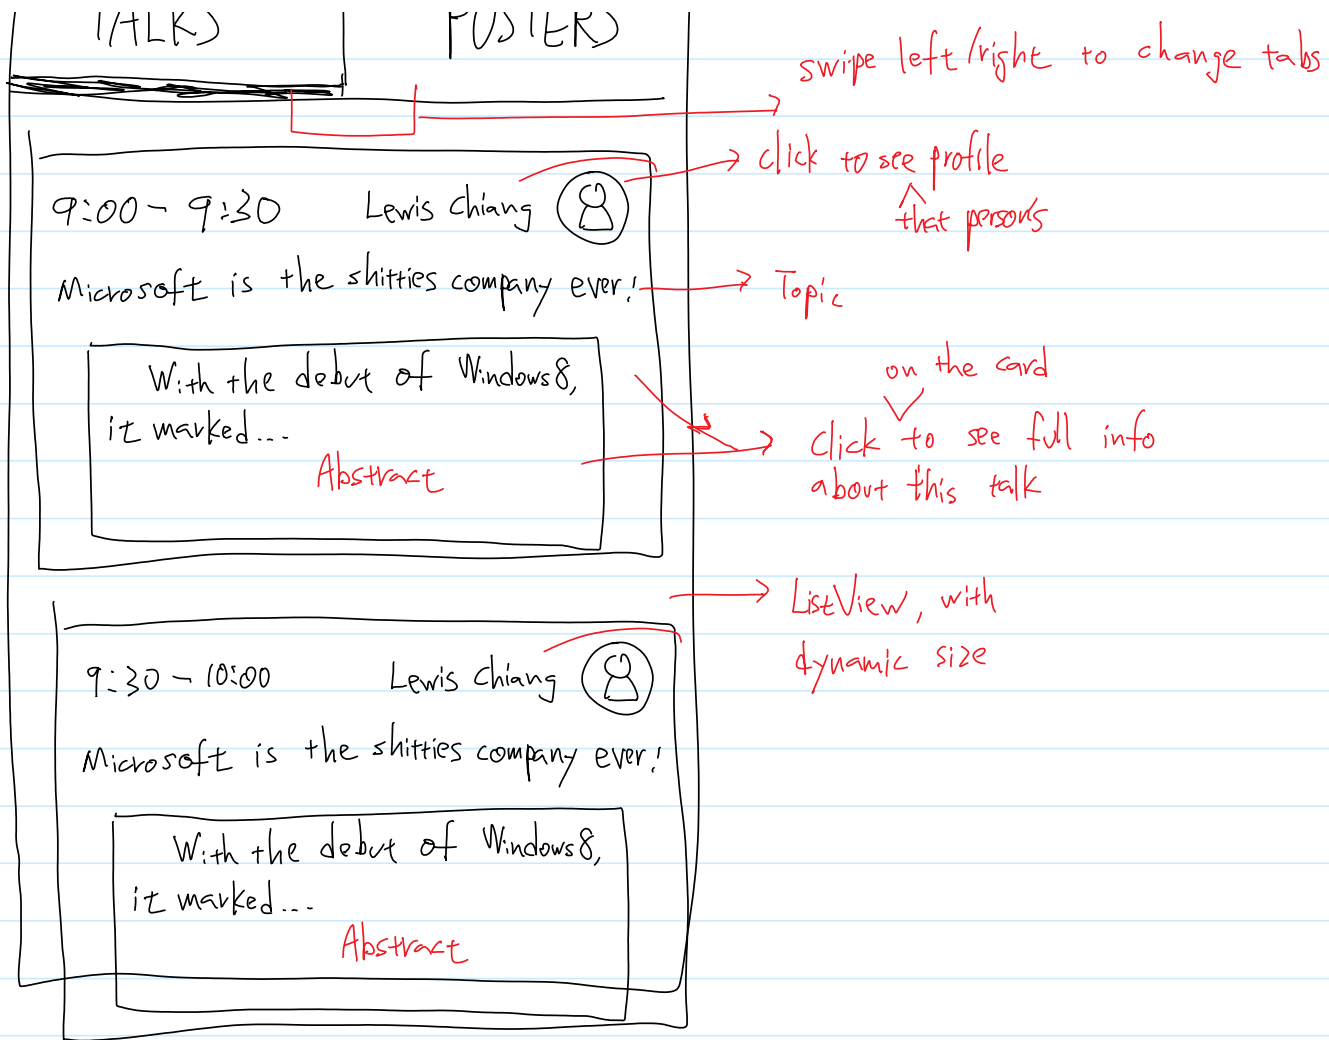 TALKS POSTERS
swipe left/right to change tabs
click to see profile
that person's
9:00 - 9:30 Lewis Chiang
Microsoft is the shitties company ever!
Topic
With the debut of Windows8,
it marked...
Abstract
on the card
click to see full info
about this talk
ListView, with
dynamic size
9:30 - 10:00 Lewis Chiang
Microsoft is the shitties company ever!
With the debut of Windows8,
it marked...
Abstract